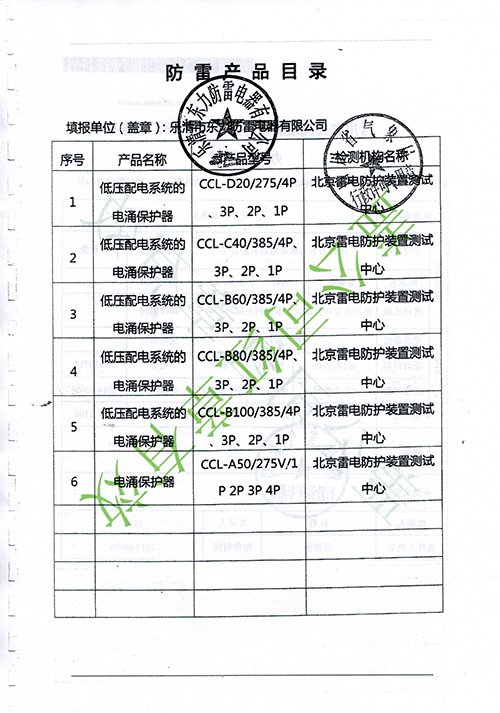 防雷产品目录
填报单位（盖章）：乐清市东力防雷电器有限公司
序号 产品名称 产品型号 检测机构名称
1 低压配电系统的 CCL-D20/275/4P 北京雷电防护装置测试
电涌保护器 、3P、2P、1P 中心
2 低压配电系统的 CCL-C40/385/4P、 北京雷电防护装置测试
电涌保护器 3P、2P、1P 中心
3 低压配电系统的 CCL-B60/385/4P、 北京雷电防护装置测试
电涌保护器 3P、2P、1P 中心
4 低压配电系统的 CCL-B80/385/4P、 北京雷电防护装置测试
电涌保护器 3P、2P、1P 中心
5 低压配电系统的 CCL-B100/385/4P 北京雷电防护装置测试
电涌保护器 、3P、2P、1P 中心
6 低压配电系统的 CCL-A50/275V/1 北京雷电防护装置测试
电涌保护器 P 2P 3P 4P 中心
乐清市东力防雷电器有限公司
盖公司红章有效